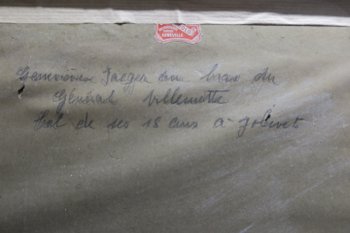 Geneviève Jaeger au bras du
Général Villemotte
bal de ses 18 ans à